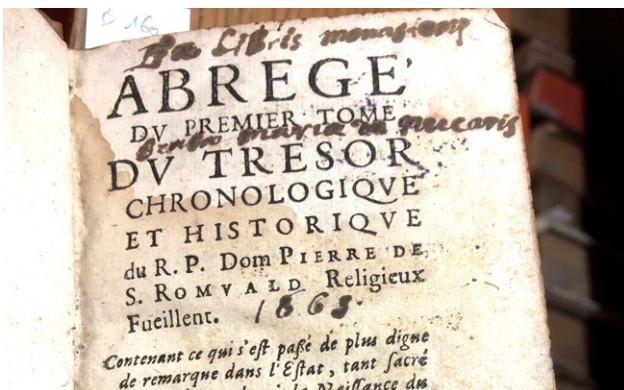 B 160
Ex Libris
ABREGE'
DV PREMIER TOME
maria
DV TRESOR
CHRONOLOGIQVE
ET HISTORIQVE
du R. P. Dom PIERRE DE
S. ROMVALD Religieux
Fueillent. 1863.
Contenant ce qui s'eſt paßé de plus digne
de remarque dans l'Eſtat, tant ſacré
la Naiſſance du